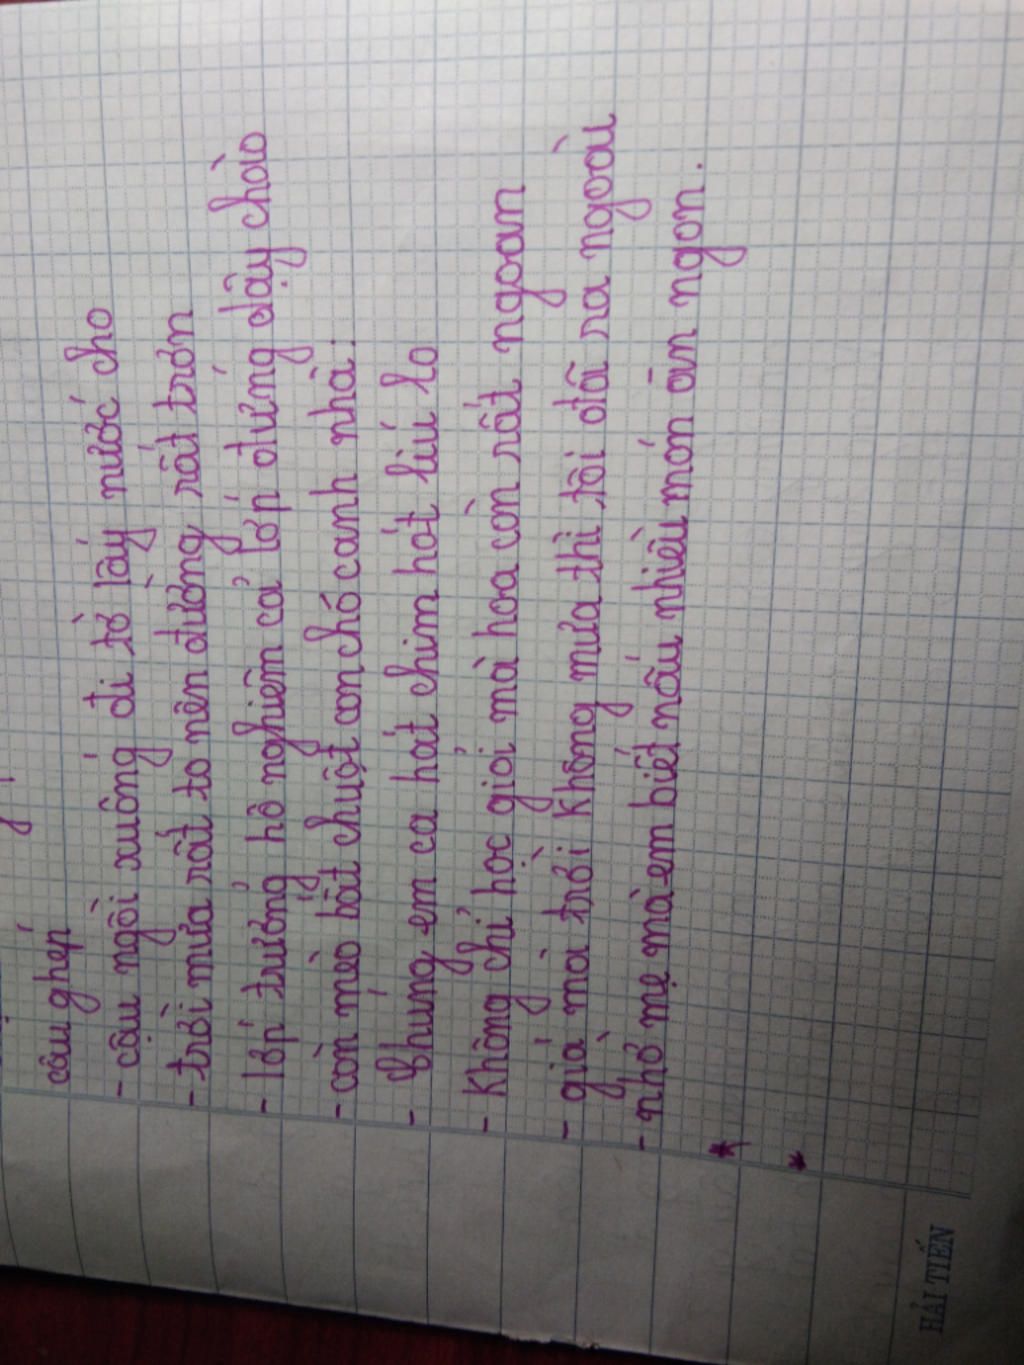 câu ghép
- cậu ngồi xuống đi tờ lấy nước cho
- trời mưa rất to nên đường rất trơn
- lớp trưởng hô nghiêm cả lớp đứng dậy chào
- còn mèo bắt chuột con chó canh nhà.
- Chúng em ca hát chim hót líu lo
- Không chỉ học giỏi mà hoa còn rất ngoan
- giá mà trời không mưa thì tôi đã ra ngoài
- nhờ mẹ mà em biết nấu nhiều món ăn ngon.
*
*
HẢI TIẾN